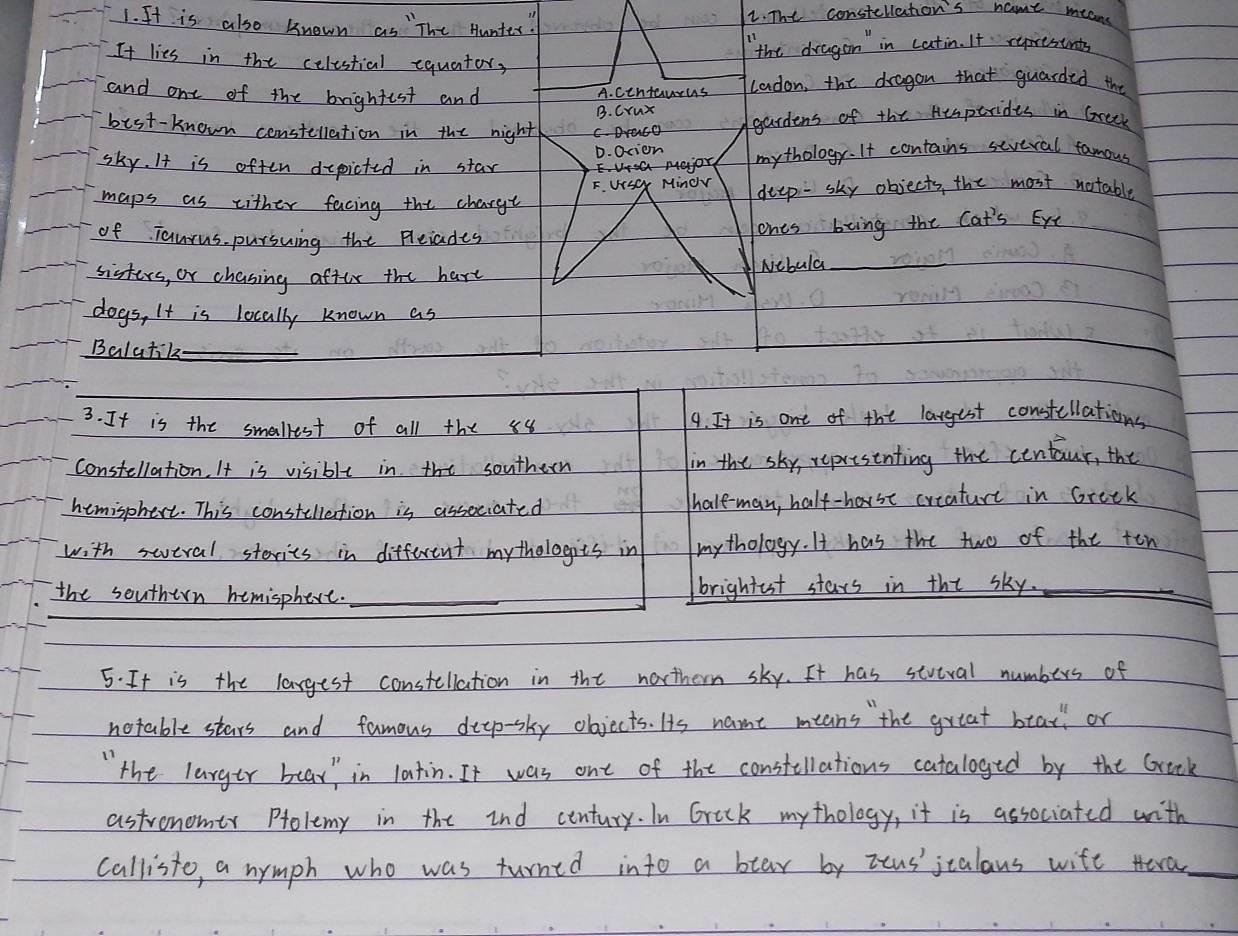 1. It is also known as "The Hunter."
It lies in the celestial equator,
and one of the brightest and
best-known constellation in the night
sky. It is often depicted in star
maps as either facing the charge
of Taurus, pursuing the Pleiades
sisters, or chasing after the hare
dogs, It is locally known as
Balatik
A. Centaurus
B. Crux
C. Draco
D. Orion
E. Ursa Major
F. Ursa Minor
2. The constellation's name means
"the dragon" in Latin. It represents
Ladon, the dragon that guarded the
gardens of the Hesperides in Greek
mythology. It contains several famous
deep-sky objects, the most notable
ones being the Cat's Eye
Nebula
3. It is the smallest of all the 88
Constellation. It is visible in the southern
hemisphere. This constellation is associated
with several stories in different mythologies in
the southern hemisphere.
4. It is one of the largest constellations
in the sky, representing the centaur, the
half-man, half-horse creature in Greek
mythology. It has the two of the ten
brightest stars in the sky.
5. It is the largest constellation in the northern sky. It has several numbers of
notable stars and famous deep-sky objects. Its name means "the great bear", or
"the larger bear", in latin. It was one of the constellations cataloged by the Greek
astronomer Ptolemy in the 2nd century. In Greek mythology, it is associated with
Callisto, a nymph who was turned into a bear by zeus' jealous wife Hera